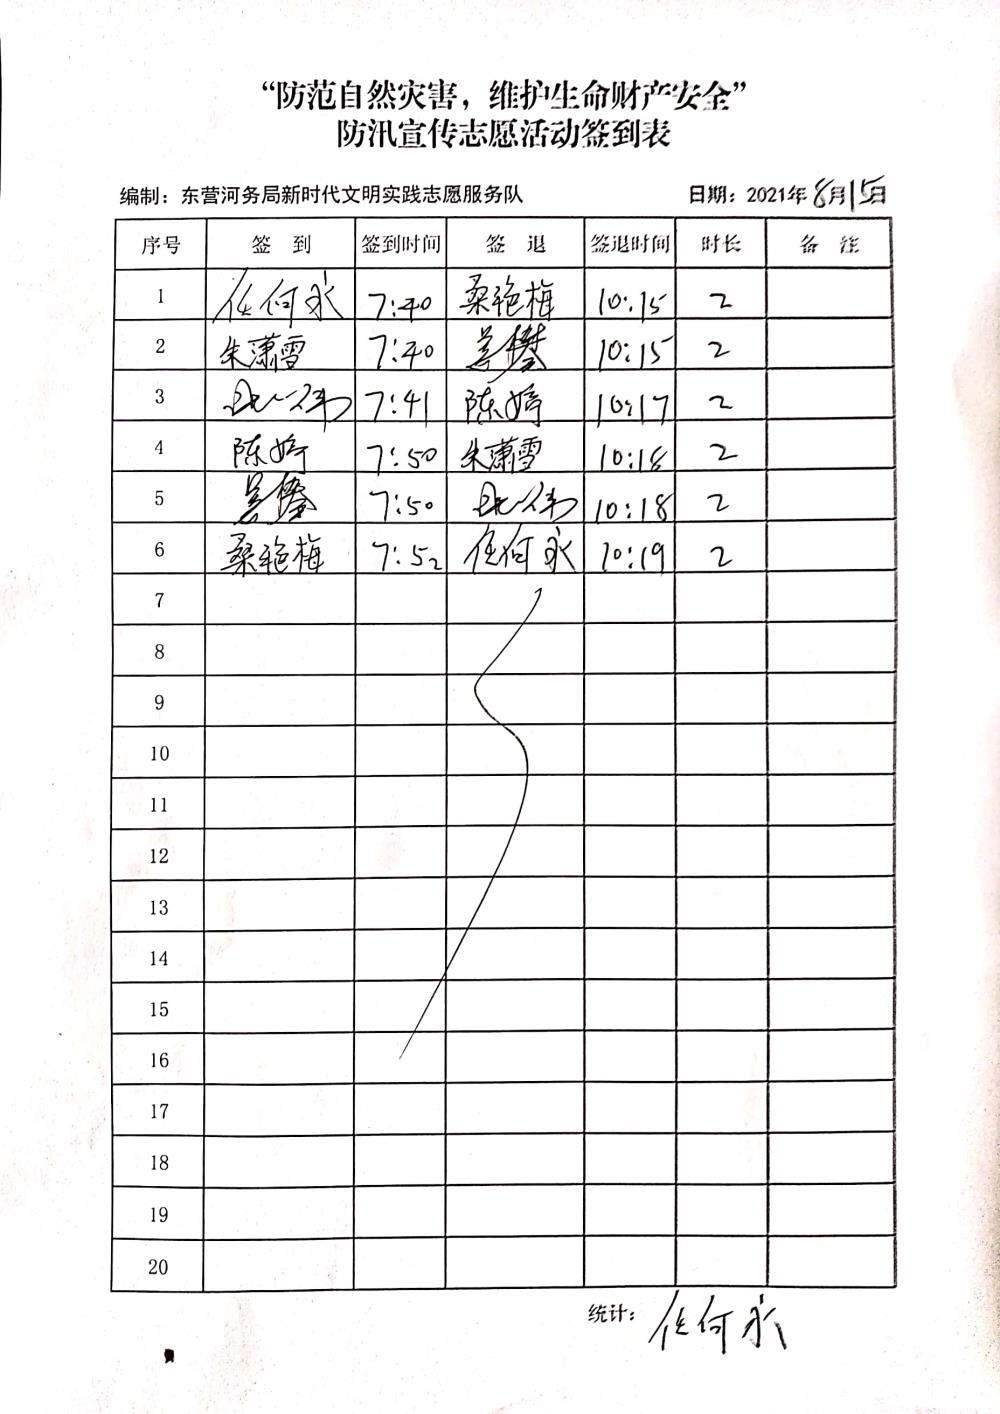 “防范自然灾害，维护生命财产安全”
防汛宣传志愿活动签到表
编制：东营河务局新时代文明实践志愿服务队 日期：2021年8月15日
序号 签 到 签到时间 签 退 签退时间 时长 备 注
1 任何永 7:40 桑艳梅 10:15 2
2 朱潇雪 7:40 10:15 2
3 7:41 陈婷 10:17 2
4 陈婷 7:50 朱潇雪 10:18 2
5 7:50 10:18 2
6 桑艳梅 7:52 任何永 10:19 2
7
8
9
10
11
12
13
14
15
16
17
18
19
20
统计：任何永